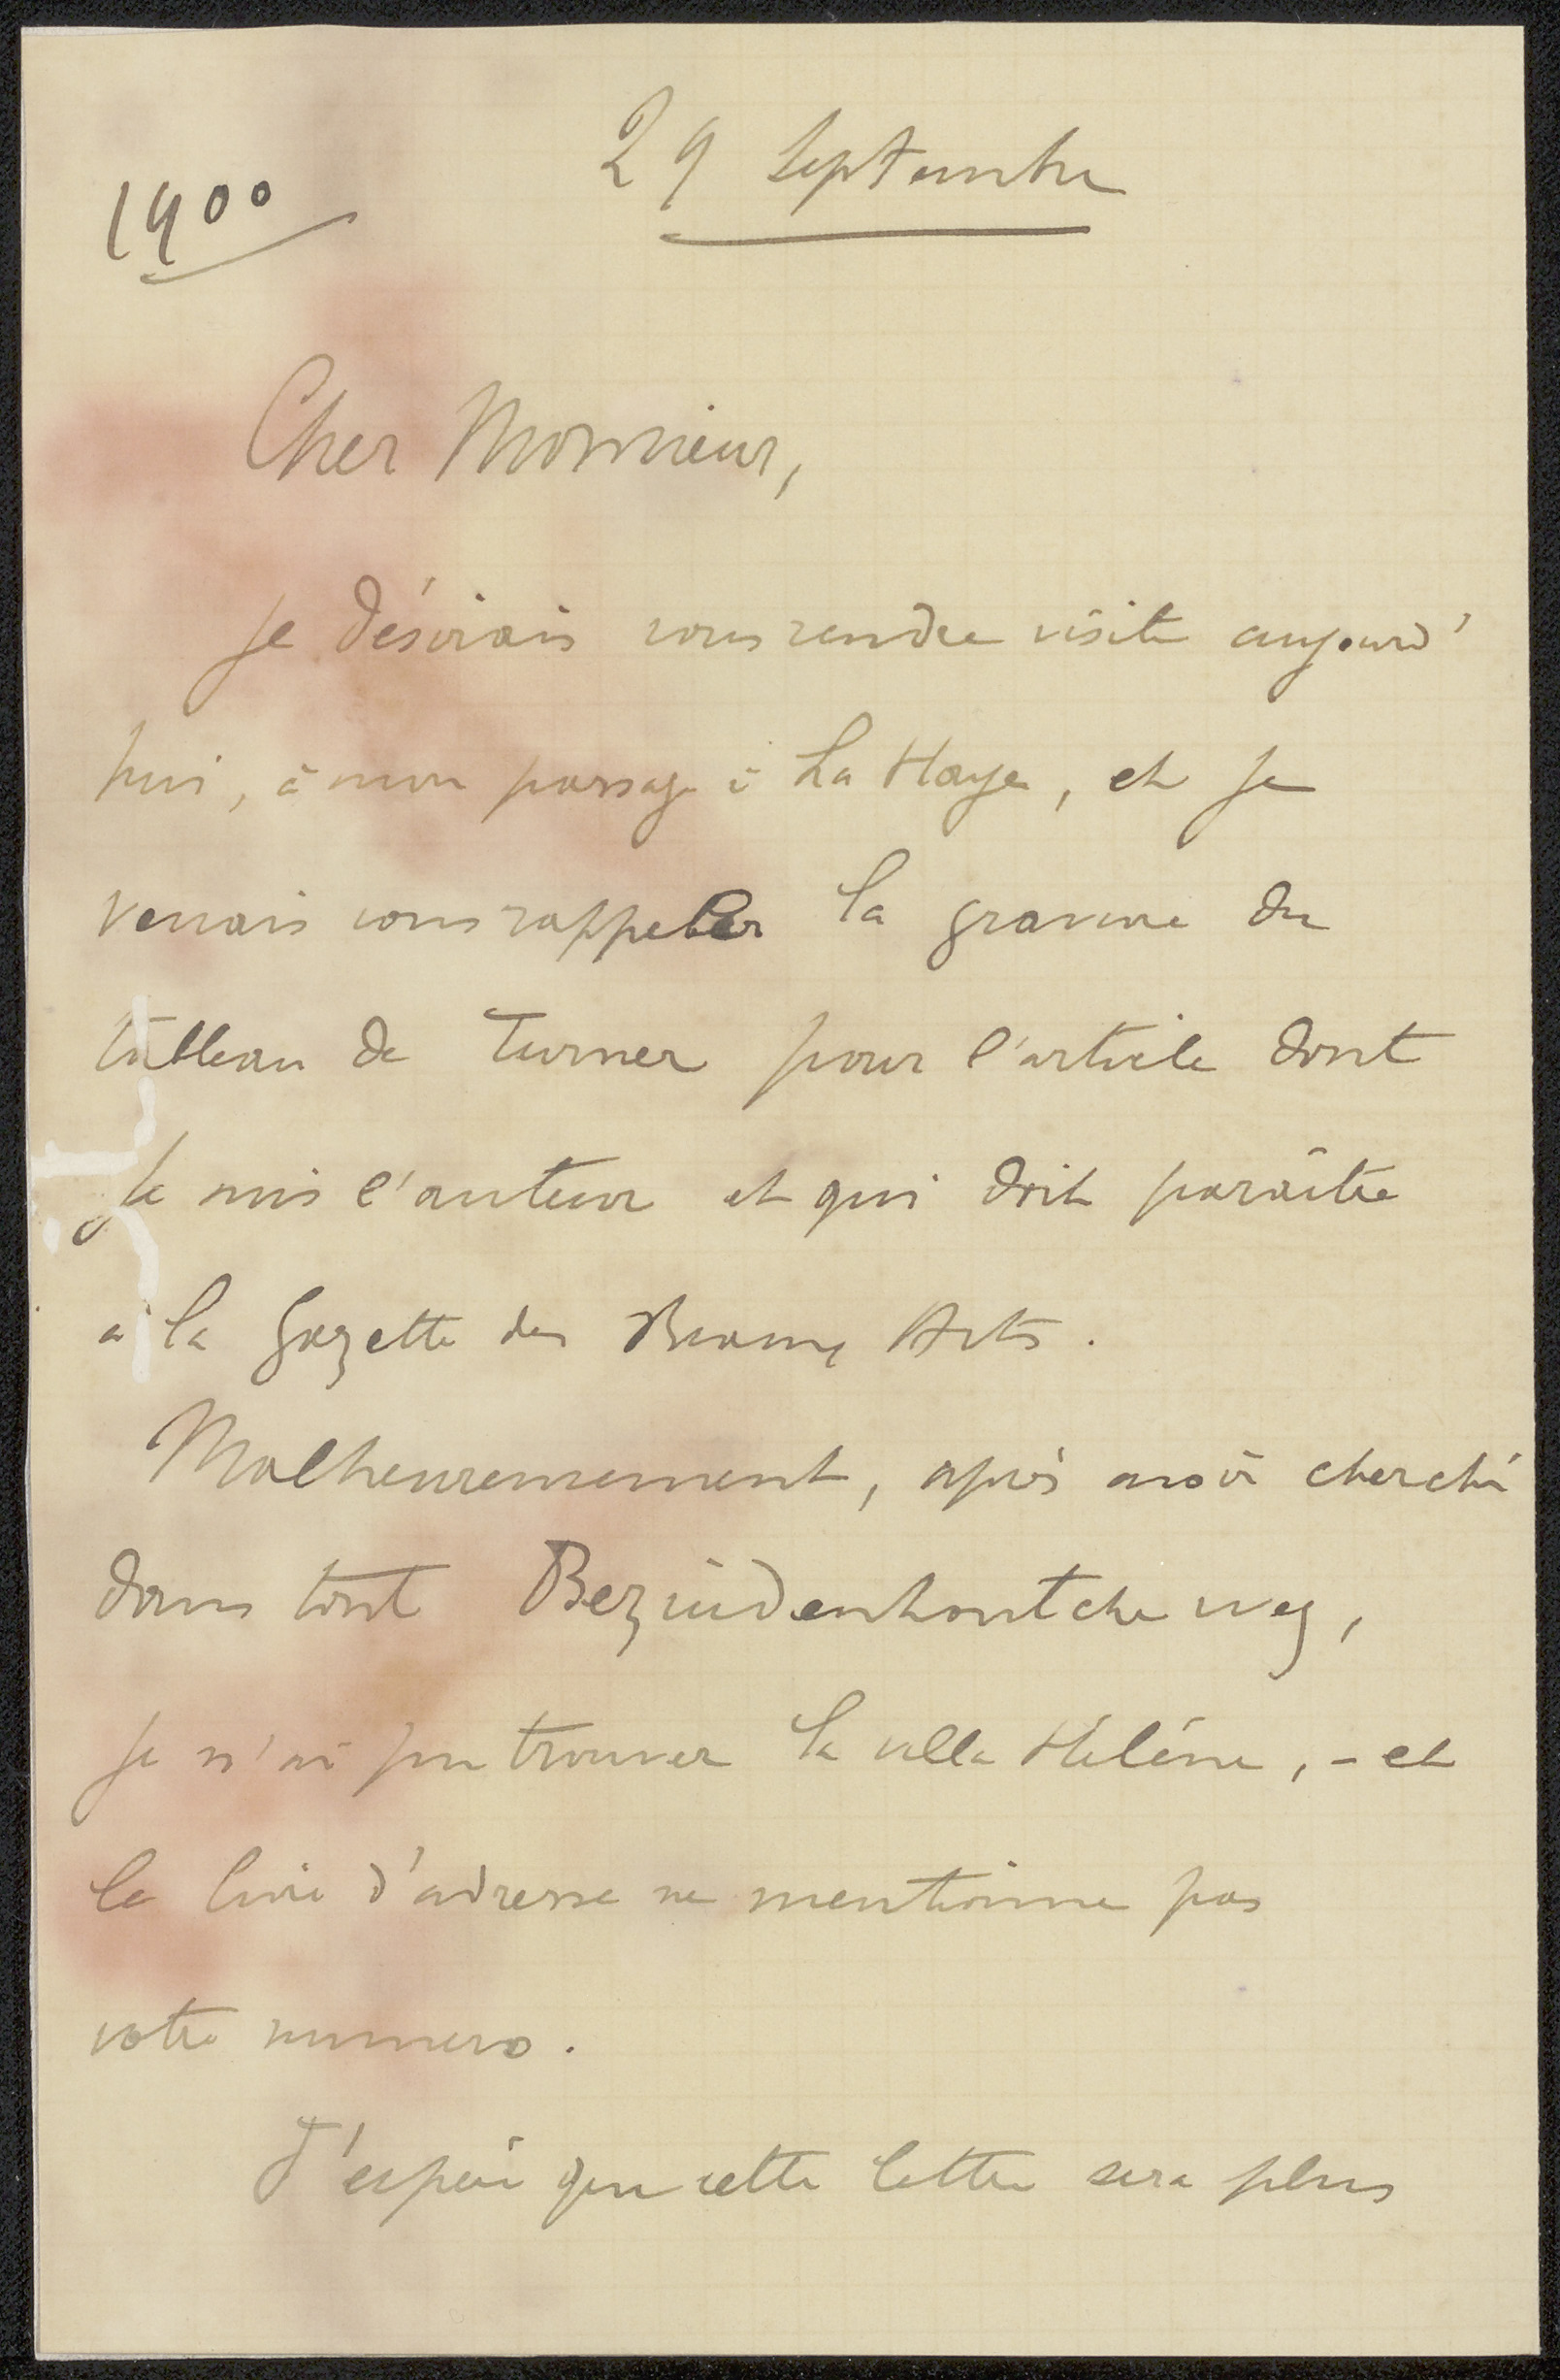 29 Septembre
1900
Cher Monsieur,
Je désirais vous rendre visite aujourd'
hui, à mon passage à La Haye, et je
venais vous rappeler la gravure du
tableau de Turner pour l'article dont
je suis l'auteur et qui doit paraître
à la Gazette des Beaux Arts.
Malheureusement, après avoir cherché
dans tout Bezuidenhoutche weg,
je n'ai pu trouver la villa Hélène, - et
le livre d'adresse ne mentionne pas
votre numero.
J'espère que cette lettre sera plus